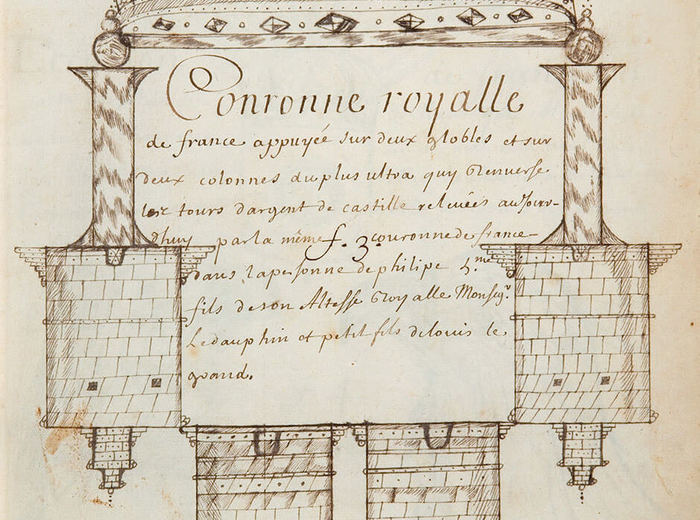 Couronne royalle
de france appuyée sur deux globles et sur
deux colonnes du plus ultra quy Renverse
les tours d'argent de castille relevées aujour-
dhuy par la même f. 3. couronne de france
dans lapersonne de philipe 5.me
fils de son Altesse Royalle Monseg.r
Le dauphin et petit fils de louis le
grand.